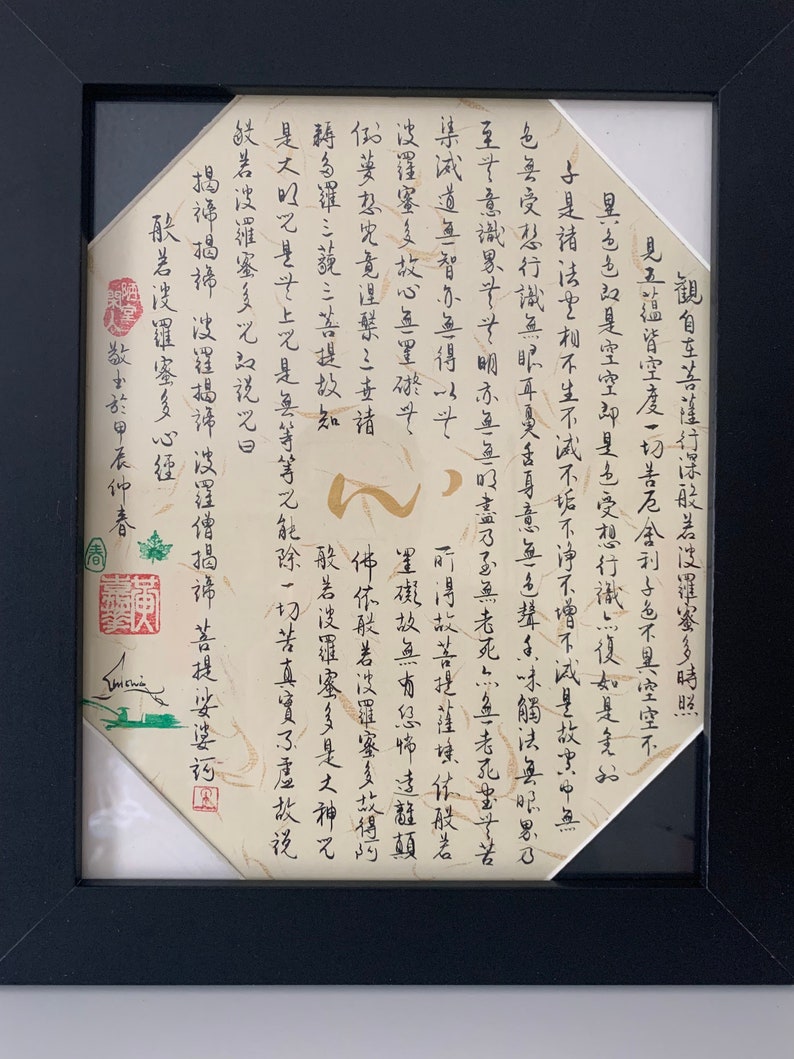 觀自在菩薩行深般若波羅蜜多時照
見五蘊皆空度一切苦厄舍利子色不異空空不
異色色即是空空即是色受想行識亦復如是舍利
子是諸法空相不生不滅不垢不淨不增不減是故空中無
色無受想行識無眼耳鼻舌身意無色聲香味觸法無眼界乃
至無意識界無無明亦無無明盡乃至無老死亦無老死盡無苦
集滅道無智亦無得以無 所得故菩提薩埵依般若
波羅蜜多故心無罣礙無 罣礙故無有恐怖遠離顛
倒夢想究竟涅槃三世諸 佛依般若波羅蜜多故得阿
耨多羅三藐三菩提故知 般若波羅蜜多是大神咒
心
是大明咒是無上咒是無等等咒能除一切苦真實不虛故說
般若波羅蜜多咒即說咒曰
揭諦揭諦 波羅揭諦 波羅僧揭諦 菩提娑婆訶
般若波羅蜜多心經
陋室閑人
敬書於甲辰仲春
春